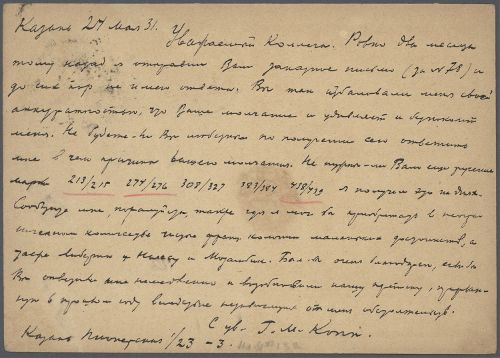 Казань 24 мая 31.
Уважаемый Коллега. Ровно два месяца
тому назад я отправил Вам заказное письмо (за № 78) и
до сих пор не имею ответа. Вы так избаловали меня своей
аккуратностью, что Ваше молчание и удивляет и беспокоит
меня. Не будете-ли Вы любезны по получении сего ответить
мне в чем причина вашего молчания. Не нужны-ли Вам еще русские
марки 213/215 274/276 308/327 383/384 438/439 я получил их на днях.
Сообщите мне, пожалуйста, также где я мог бы приобрести в
количестве франц. колонии маленьких достоинств, а
также Либерию и Мозамбик. Был-бы очень благодарен, если бы
Вы ответили мне и возобновили нашу
в прошлом году вследствие от меня обстоятельств.
С ув. Г. М.
Казань Пионерская 1/23 – 3.